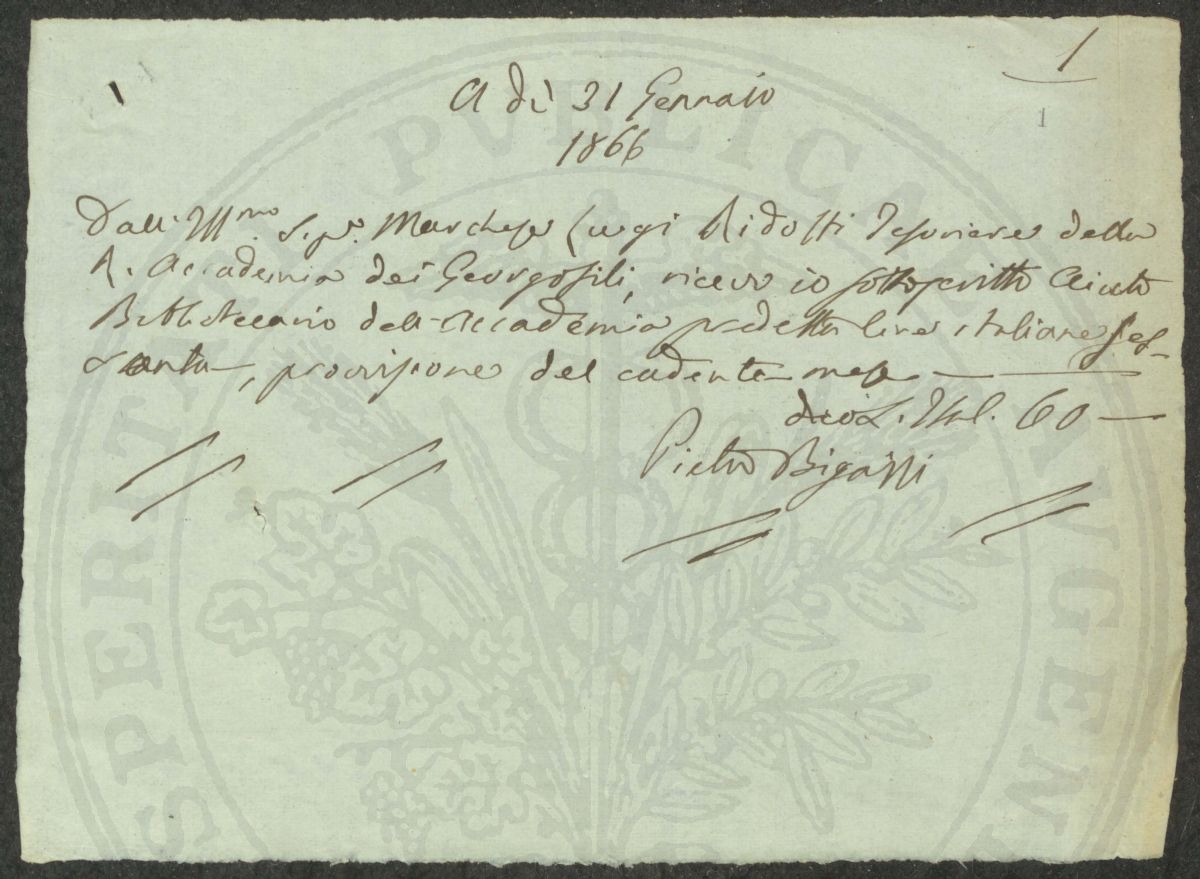 1
1
A dì 31 Gennaio
1866
Dall' Illmo. Sigr. Marchese Luigi Ridolfi Tesoriere della
R. Accademia dei Georgofili, ricevo io sottoscritto Aiuto
Bibliotecario dell'Accademia predetta lire italiane ses-
santa, provvisione del cadente mese
dico L. Ital. 60 —
Pietro Bigazzi
PROSPERITATI PVBLICAE AVGENDAE